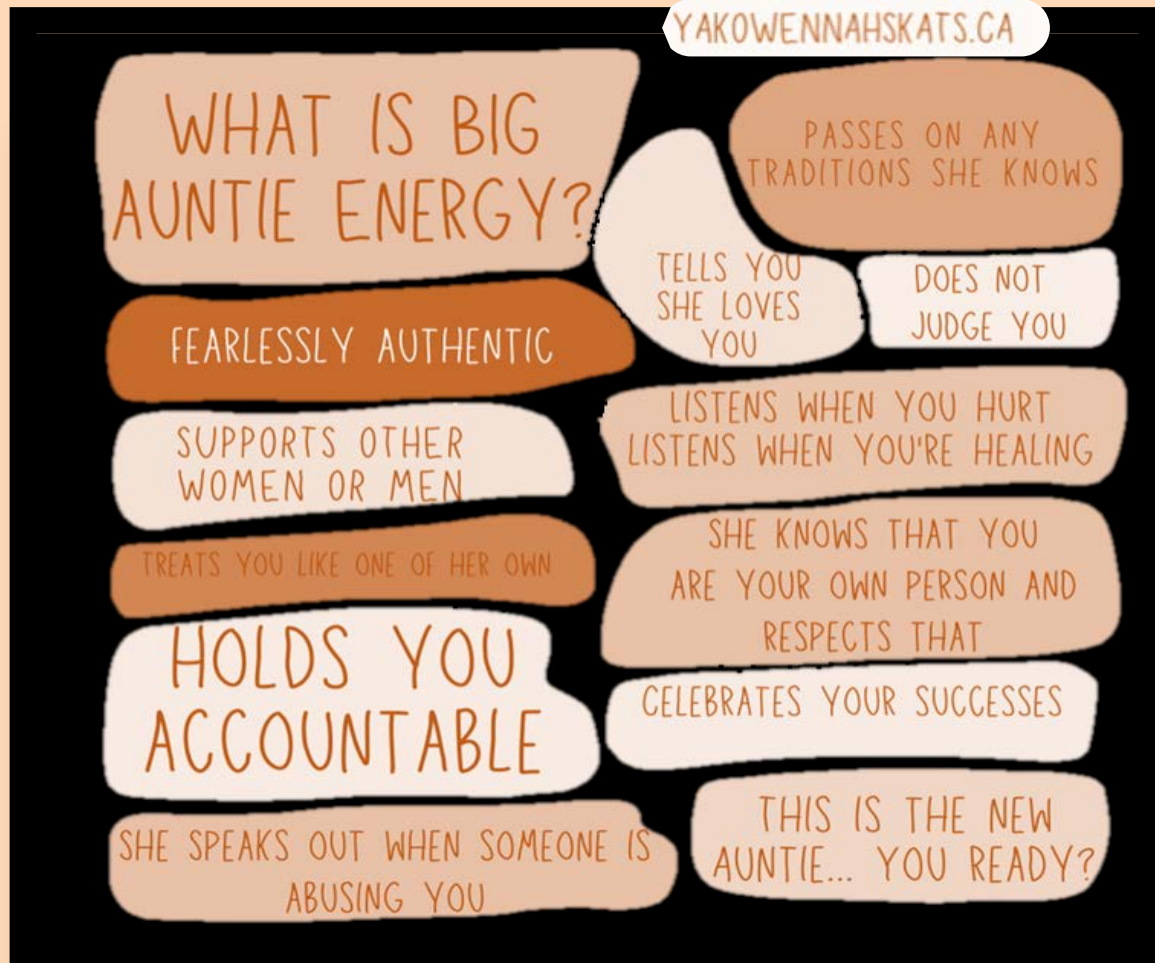 YAKOWENNAHSKATS.CA
WHAT IS BIG
AUNTIE ENERGY?
FEARLESSLY AUTHENTIC
SUPPORTS OTHER
WOMEN OR MEN
TREATS YOU LIKE ONE OF HER OWN
HOLDS YOU
ACCOUNTABLE
SHE SPEAKS OUT WHEN SOMEONE IS
ABUSING YOU
PASSES ON ANY
TRADITIONS SHE KNOWS
TELLS YOU
SHE LOVES
YOU
DOES NOT
JUDGE YOU
LISTENS WHEN YOU HURT
LISTENS WHEN YOU'RE HEALING
SHE KNOWS THAT YOU
ARE YOUR OWN PERSON AND
RESPECTS THAT
CELEBRATES YOUR SUCCESSES
THIS IS THE NEW
AUNTIE... YOU READY?